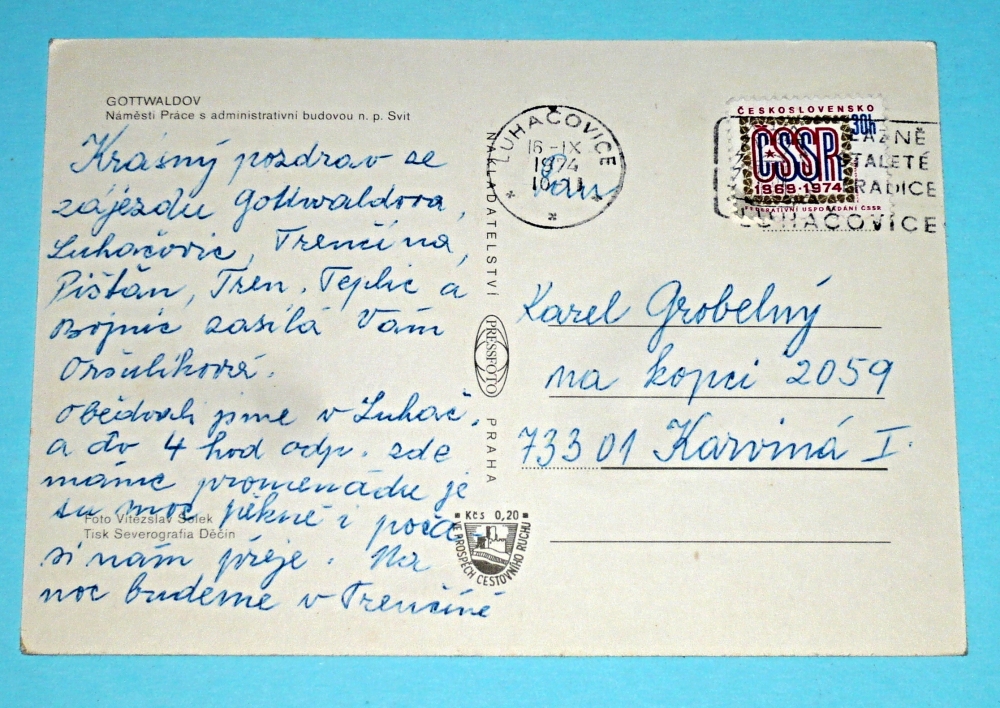 GOTTWALDOV
Náměstí Práce s administrativní budovou n. p. Svit
Krásný pozdrav ze
zájezdu Gottwaldova,
Luhačovic, Trenčína,
Pišťán, Tren. Teplic a
Bojnic zasílá Vám
Oršulíková.
Obědvali jsme v Luhač.
a do 4 hod odp. zde
máme promenádu je
su moc pěkné i poča
si nám přeje. Na
noc budeme v Trenčíně
Foto Vítězslav Solek
Tisk Severografia Děčín
NAKLADATELSTVÍ PRESSFOTO PRAHA
Kčs 0,20
VE PROSPĚCH CESTOVNÍHO RUCHU
LUHAČOVICE
16.-IX
1974
Vám
ČESKOSLOVENSKO
30h
ČSSR
1969-1974
USPOŘÁDÁNÍ ČSSR
LÁZNĚ
STALETÉ
TRADICE
LUHAČOVICE
Karel Grobelný
na kopci 2059
733 01 Karviná I.